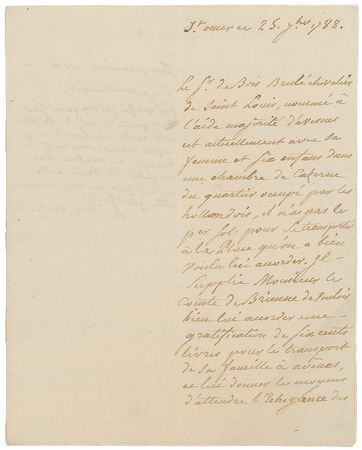 St omer ce 25. 7bre 1788.
Le Sr. de Bois Brulé chevalier
de Saint Louis, nommé à
l'aide majorité d'avesnes
est actuellement avec sa
femme et six enfans dans
une chambre de Caserne
du quartier occupé par les
hollandois, il n'a pas le
per sol pour se transporter
à la Place qu'on a bien
voulu lui accorder. Il
Supplie Monsieur le
Comte de Brienne de vouloir
bien lui accorder une
gratification de six cents
livres pour le transport
de sa famille à avesnes,
et lui donner les moyens
d'attendre l'Echéance des